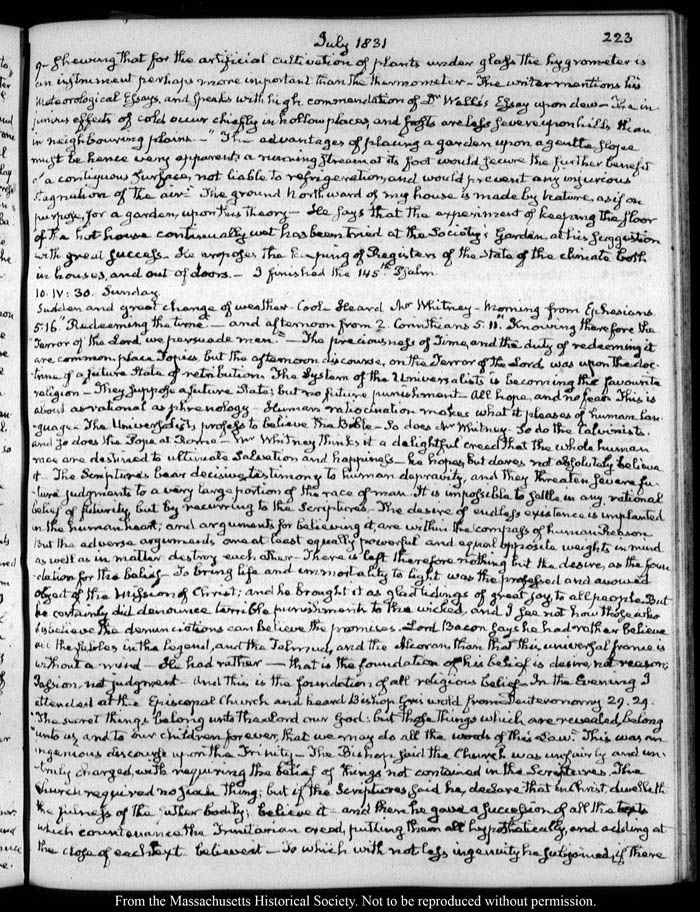 July 1831
223
9. Shewing that for the artificial cultivation of plants under glass the hygrometer is
an instrument perhaps more important than the thermometer – The writer mentions his
Meteorological Essays, and speaks with high commendation of Dr Wells's Essay upon dew – The in-
jurious effects of cold occur chiefly in hollow places, and frosts are less severe upon hills than
in neighbouring plains – "The advantages of placing a garden upon a gentle slope
must be hence very apparent; a running stream at its foot would secure the further benefit
of a contiguous surface, not liable to refrigeration, and would prevent any injurious
stagnation of the air." The ground Northward of my house is made by Nature, as if on
purpose, for a garden, upon this theory – He says that the experiment of keeping the floor
of the hot house continually wet has been tried at the Society's Garden, at his suggestion
with great success – He proposes the keeping of Registers of the state of the climate both
in houses, and out of doors. – I finished the 145th Psalm
10. IV: 30. Sunday.
Sudden and great change of weather. Cool – Heard Mr Whitney – Morning from Ephesians
5.16 "Redeeming the time" – and afternoon from 2. Corinthians 5.11. "Knowing therefore the
Terror of the Lord, we persuade men." – The preciousness of Time, and the duty of redeeming it
are common place Topics, but the afternoon discourse, on the Terror of the Lord was upon the doc-
trine of a future State of retribution. The System of the Universalists is becoming the favourite
religion – They suppose a future State; but no future punishment – All hope, and no fear. This is
about as rational as phrenology – Human ratiocination makes what it pleases of human lan-
guage – The Universalists profess to believe the Bible – So does Mr Whitney – So do the Calvinists.
and so does the Pope at Rome – Mr Whitney thinks it a delightful creed that the whole human
race are destined to ultimate Salvation and happiness – he hopes but dares not absolutely believe
it – The Scriptures bear decisive testimony to human depravity, and they threaten severe fu-
ture judgments to a very large portion of the race of man. It is impossible to settle in any rational
belief of futurity, but by recurring to the Scriptures. The desire of endless existence is implanted
in the human heart; and arguments for believing it, are within the compass of human Reason
But the adverse arguments are at least equally powerful and equal opposite weights in mind
as well as in matter destroy each other – There is left therefore nothing but the desire, as the foun-
dation for the belief – To bring life and immortality to light was the professed and avowed
object of the Mission of Christ; and he brought it as glad tidings of great joy to all people. But
he certainly did denounce terrible punishment to the wicked, and I see not how those who
disbelieve the denunciations can believe the promises. Lord Bacon says he had rather believe
all the fables in the legend, and the Talmud, and the Alcoran, than that this universal frame is
without a mind – He had rather – that is the foundation of his belief is desire, not reason;
Passion, not judgment – and this is the foundation of all religious belief – In the Evening I
attended at the Episcopal Church and heard Bishop Griswold from Deuteronomy 29.29.
"The secret things belong unto the Lord our God: but those things which are revealed, belong
unto us, and to our children forever, that we may do all the words of this Law." This was an
ingenious discourse upon the Trinity – The Bishop said the Church was unfairly and un-
truly charged, with requiring the belief of things not contained in the Scriptures. The
Church required no such thing; but if the Scriptures said he, declare that in Christ dwelleth
the fulness of the father bodily; believe it – and then he gave a succession of all the texts
which countenance the Trinitarian creed, putting them all hypothetically, and adding at
the close of each text believe it – To which with not less ingenuity he subjoined, if there
From the Massachusetts Historical Society. Not to be reproduced without permission.